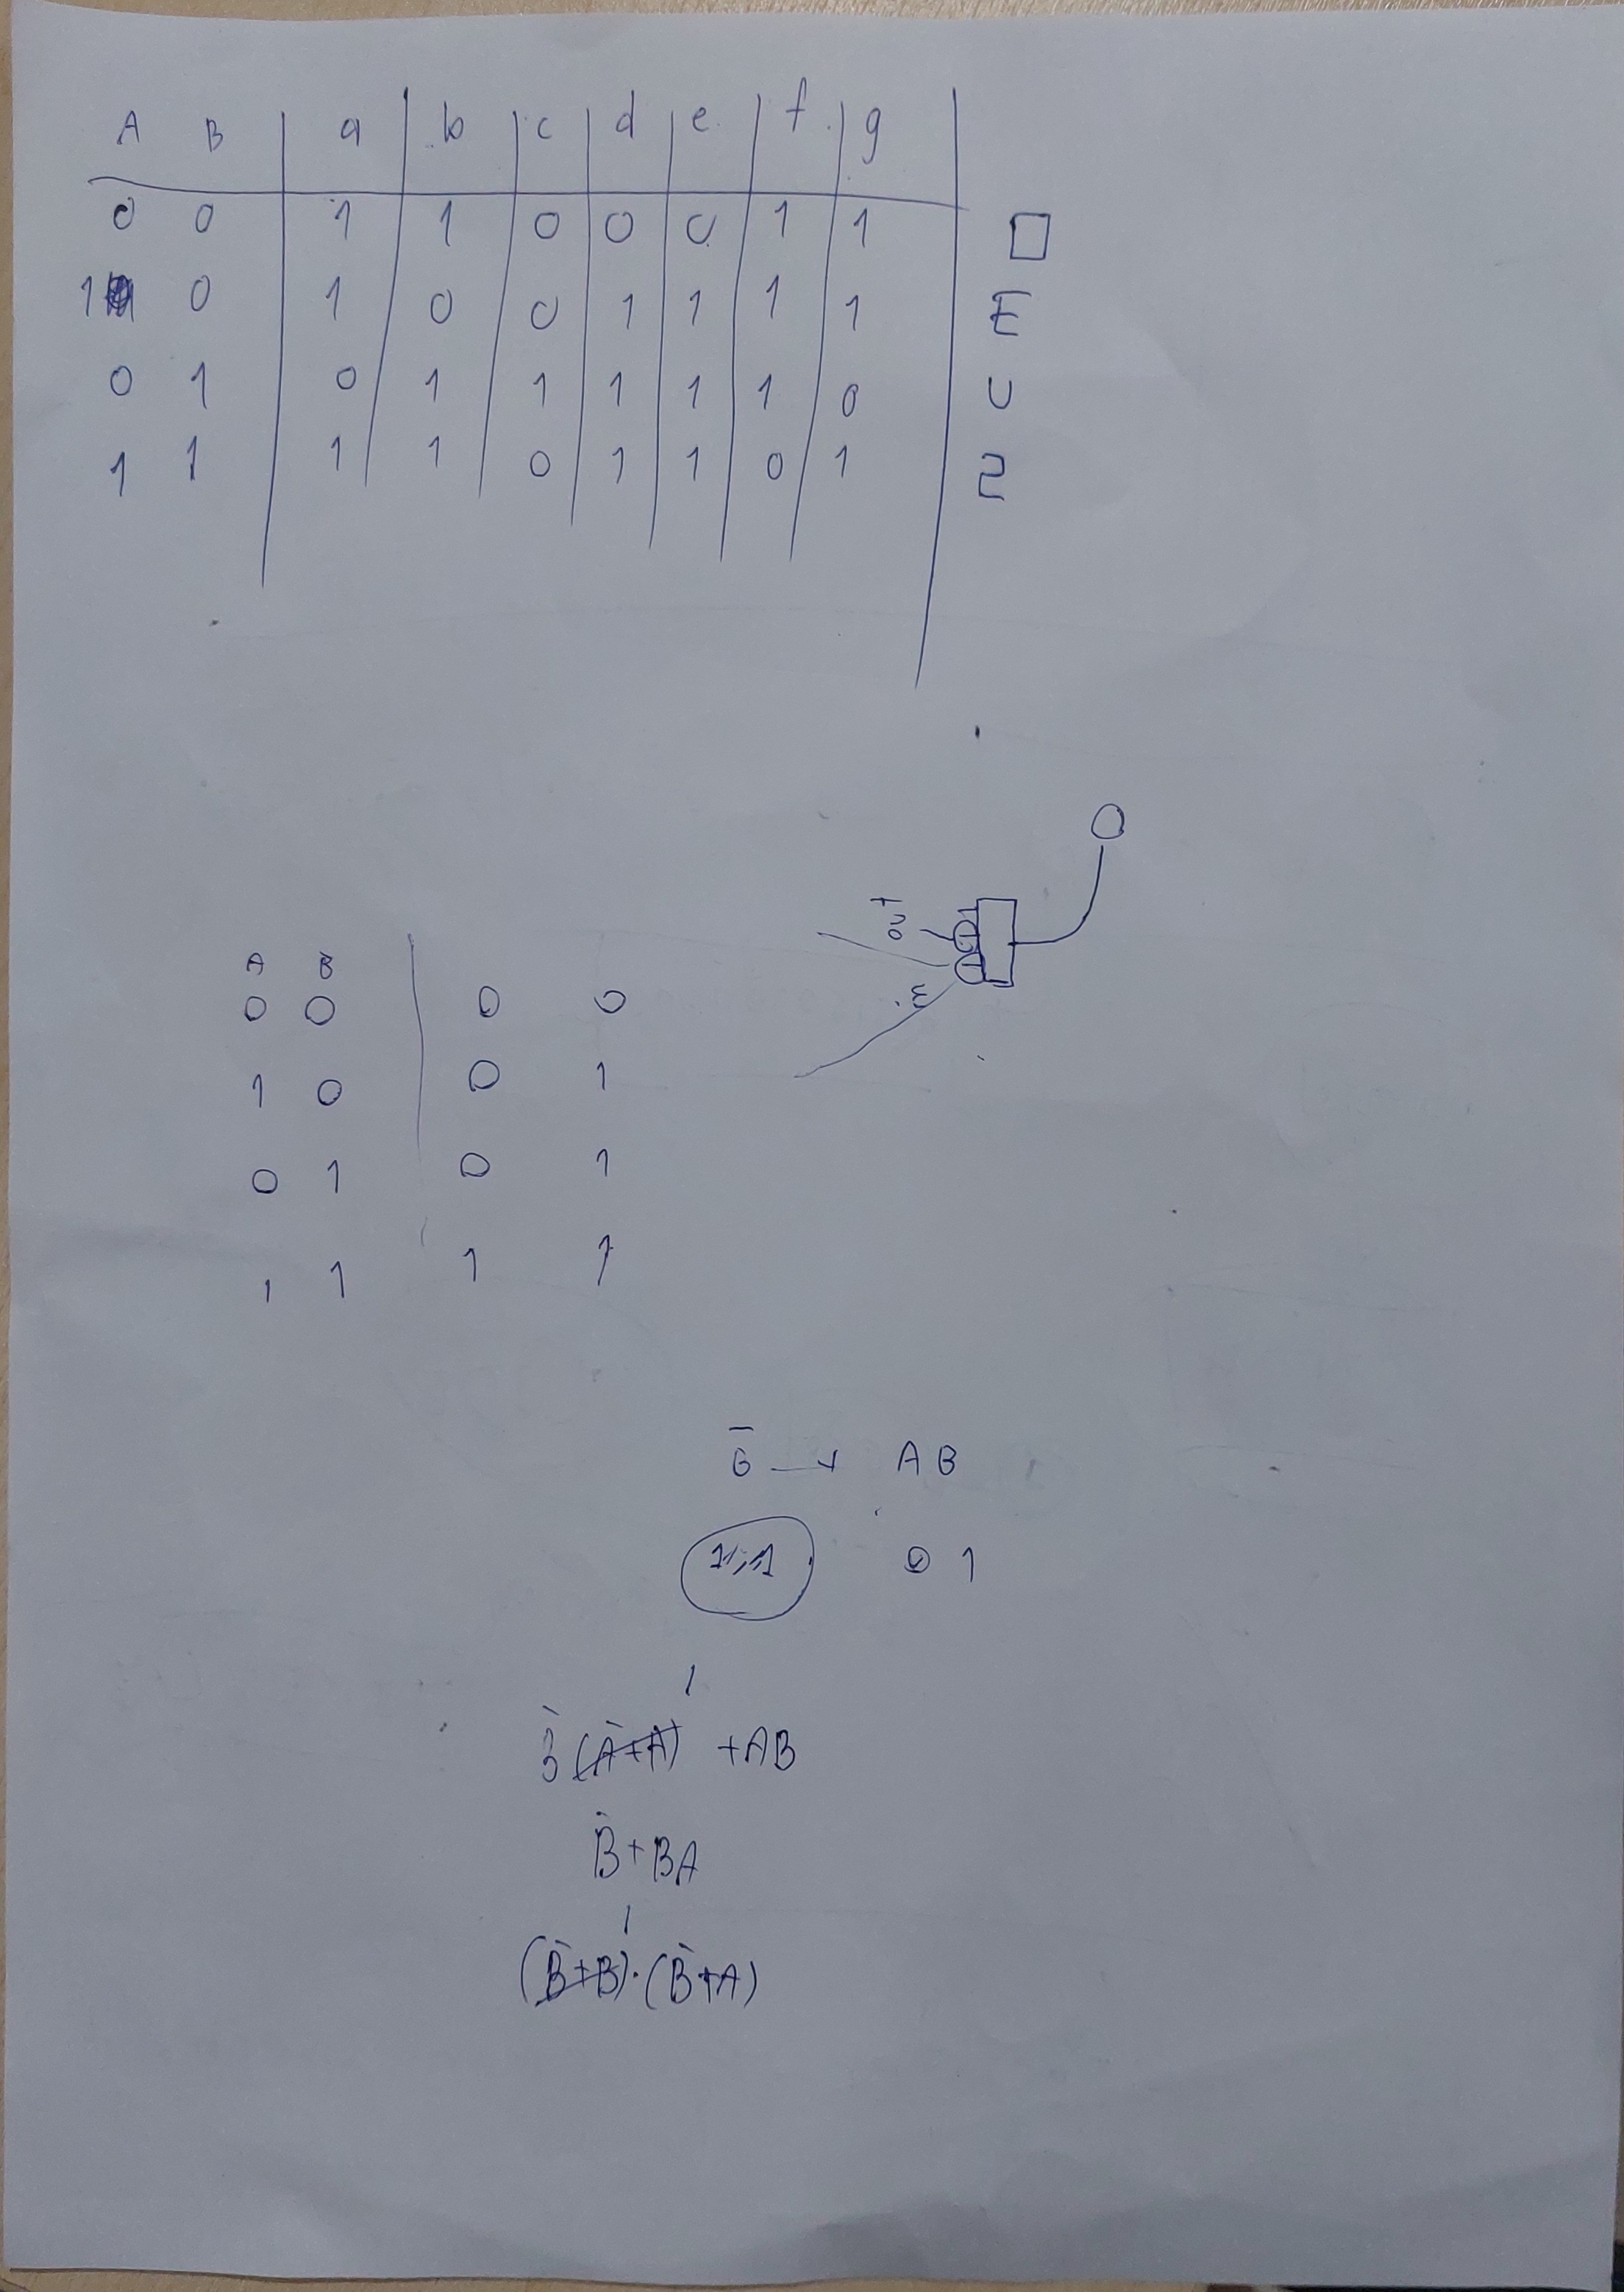 A B a b c d e f g
0 0 1 1 0 0 0 1 1 □
1 0 1 0 0 1 1 1 1 E
0 1 0 1 1 1 1 1 0 U
1 1 1 1 0 1 1 0 1 2
out
in
A B
0 0 0 0
1 0 0 1
0 1 0 1
1 1 1 1
A B
0 1
1
(Ā+A) +AB
B̄+BA
1
(B̄+B)·(B̄+A)